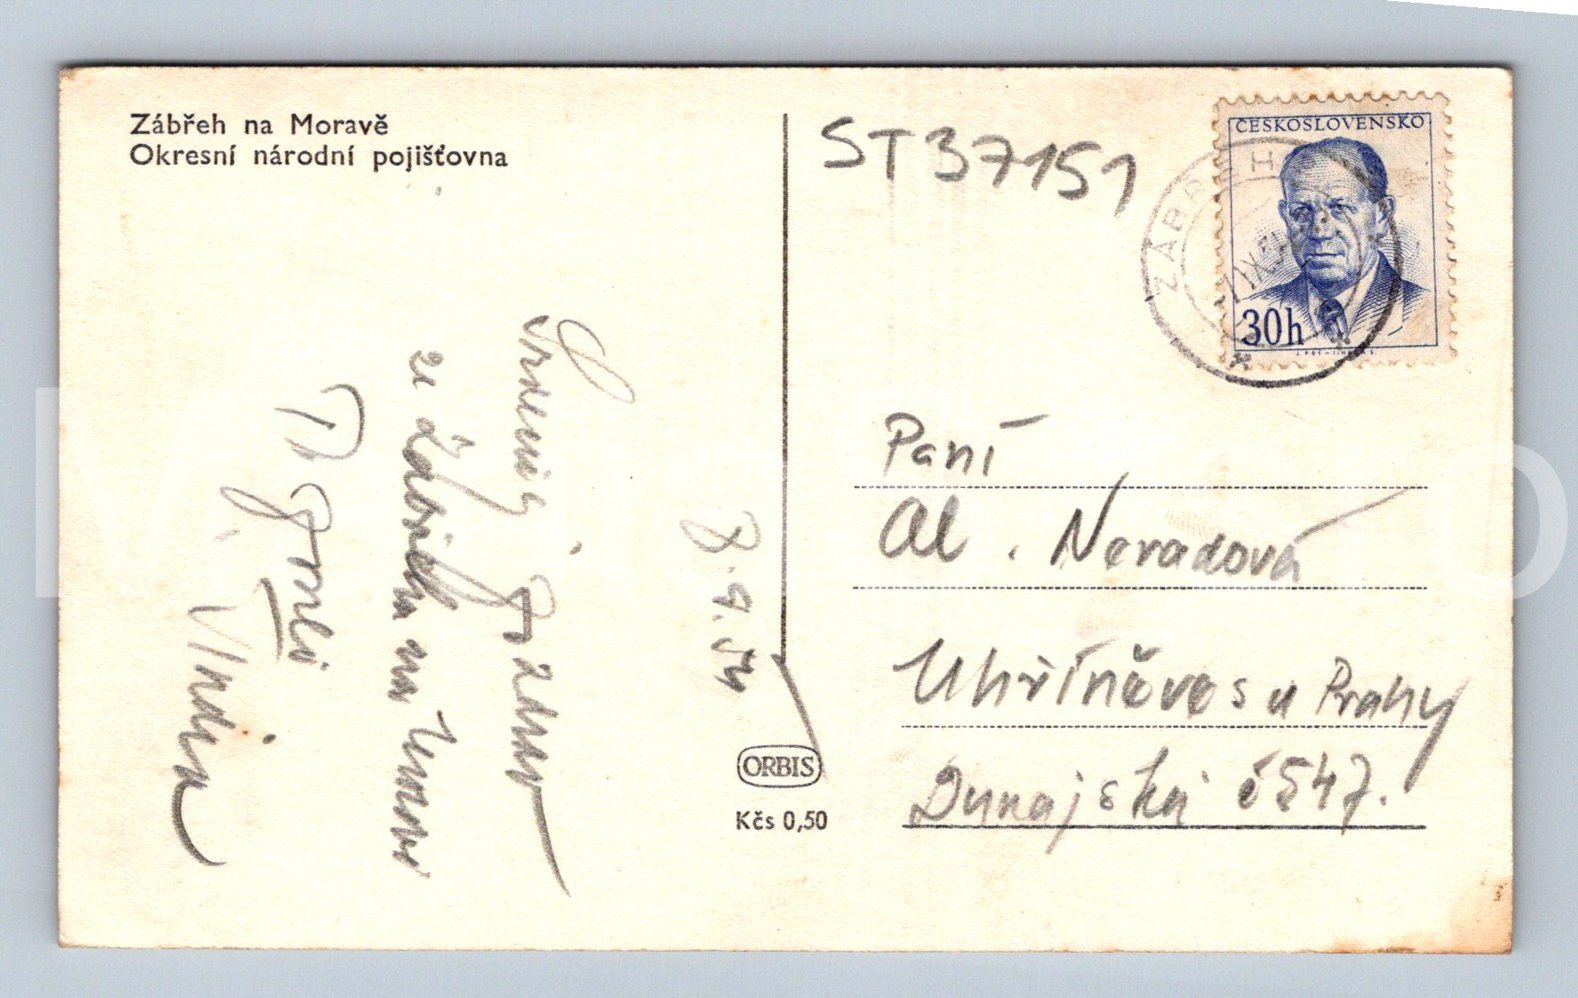 Zábřeh na Moravě
Okresní národní pojišťovna
8.9.54
Srdečný pozdrav
ze Zábřehu na Moravě
ORBIS
Kčs 0,50
ST37151
ČESKOSLOVENSKO
30h
ZÁBŘEH
Paní
Al. Nevadová
Uhříněves u Prahy
Dunajská č 547.